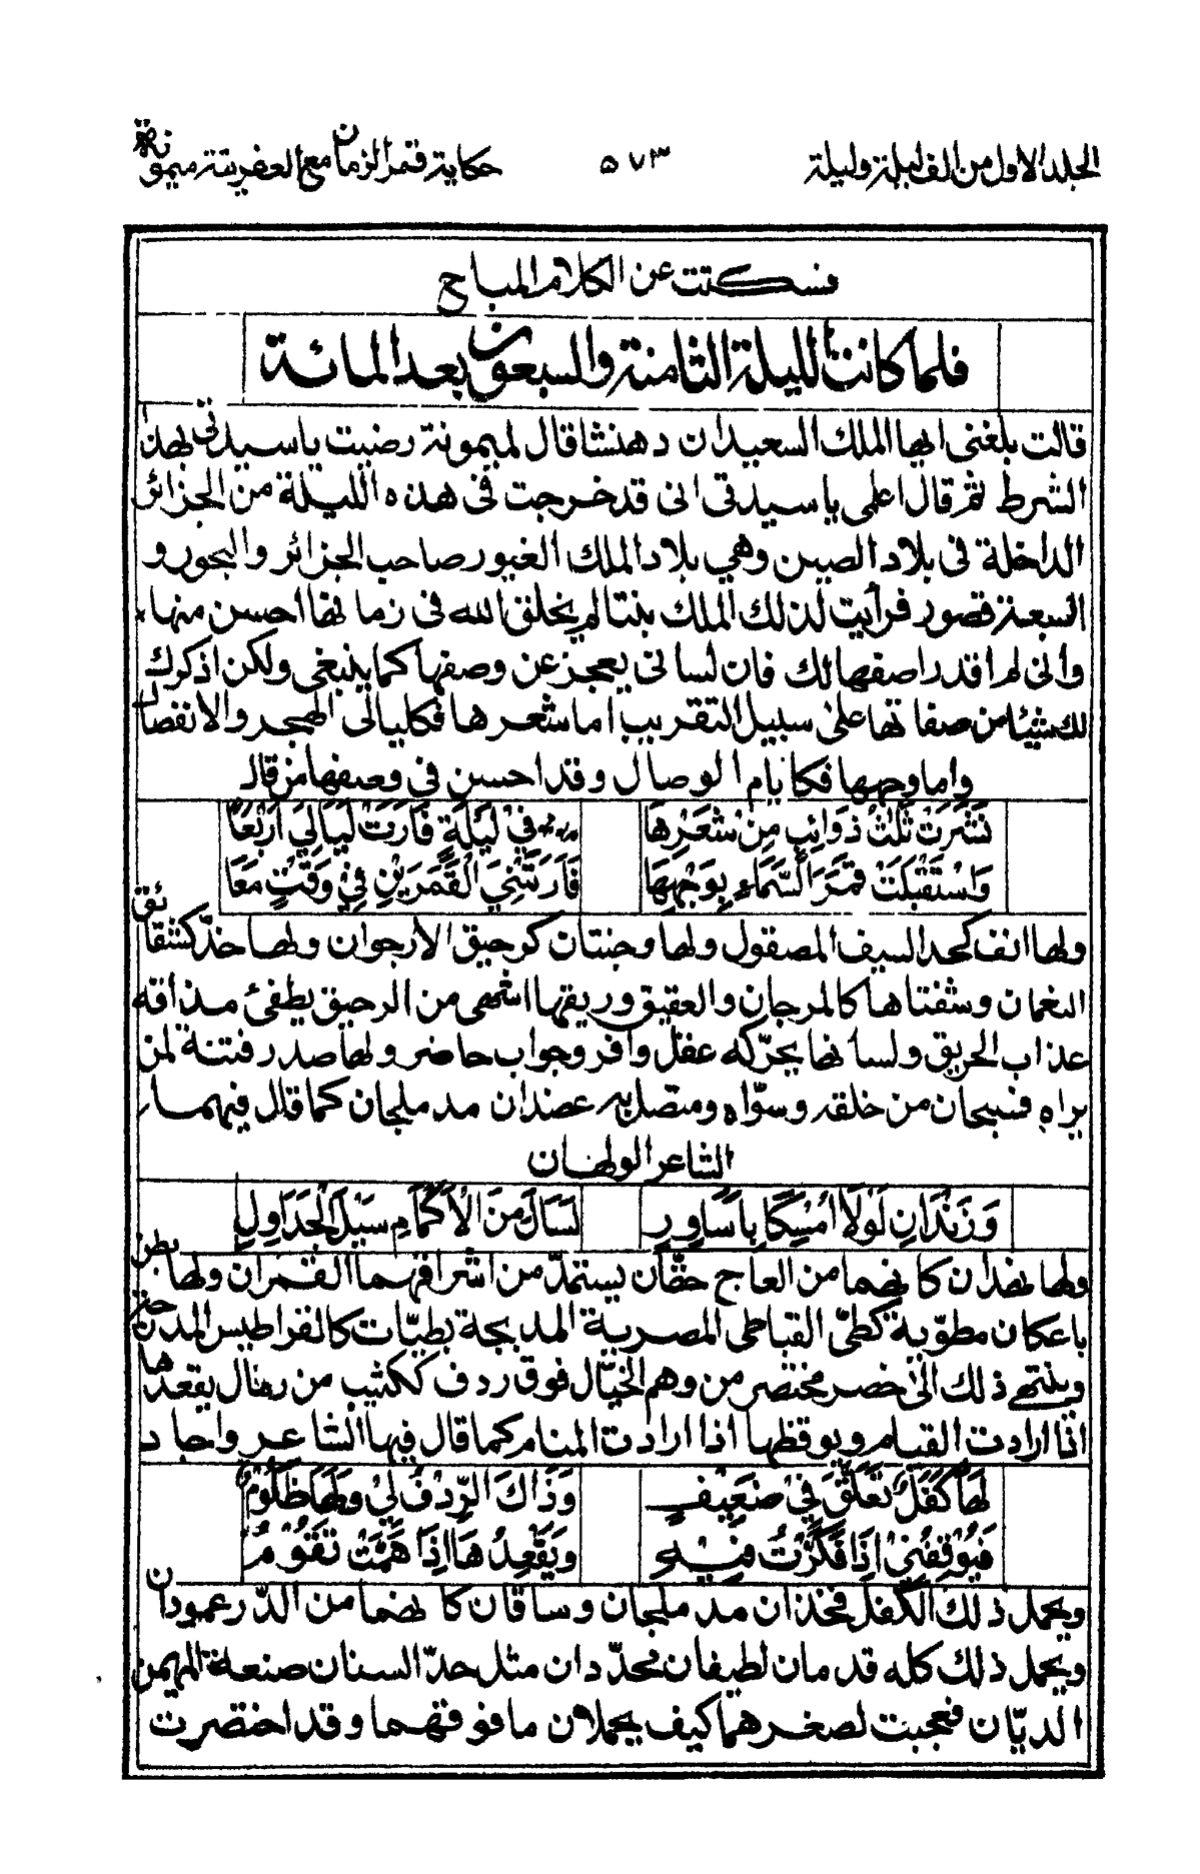 المجلد الاول من الف ليلة وليلة ٥٧٣ حكاية قمر الزمان مع العفريتة ميمونة
فسكتت عن الكلام المباح
فلما كانت الليلة الثامنة والسبعون بعد المائة
قالت بلغني ايها الملك السعيد ان دهنشا قال لميمونة رضيت يا سيدتي بهذا
الشرط ثم قال اعلمي يا سيدتي اني قد خرجت في هذه الليلة من الجزائر
الداخلة في بلاد الصين وهي بلاد الملك الغيور صاحب الجزائر والبحور و
السبعة قصور فرأيت لذلك الملك بنتا لم يخلق الله في زمانها احسن منها
وأني لم اقدر اصفها لك فان لساني يعجز عن وصفها كما ينبغي ولكن اذكر
لك شيئا من صفاتها على سبيل التقريب اما شعرها فكليالي الهجر والانفصال
واما وجهها فكايام الوصال وقد احسن في وصفها من قال
نَشَرَتْ ثَلٰثَ ذَوَائِبٍ مِنْ شَعْرِهَا فِيْ لَيْلَةٍ فَأَرَتْ لَيَالِيَ اَرْبَعًا
وَاسْتَقْبَلَتْ قَمَرَ السَّمَاءِ بِوَجْهِهَا فَأَرَتْنِيَ الْقَمَرَيْنِ فِيْ وَقْتٍ مَعًا
ولها انف كحد السيف المصقول ولها وجنتان كرحيق الارجوان ولها خدّ كشقائق
النعمان وشفتاها كالمرجان والعقيق وريقها اشهى من الرحيق يطفئ مذاقه
عذاب الحريق ولسانها يحرّكه عقل وافر وجواب حاضر ولها صدر فتنة لمن
يراه فسبحان من خلقه وسوّاه ومتصل به عضدان مدملجان كما قال فيهما
الشاعر الولهان
وَزَنْدَانِ لَوْلَا اُمْسِكَا بِاَسَاوِرٍ لَسَالَ مِنَ الْاَكْمَامِ سَيْلَ الْجَدَاوِلِ
ولها نهدان كانهما من العاج حقّان يستمدّ من اشراقهما القمران ولها بطن
باعكان مطويّة كطيّ القباطي المصرية المدبجة بطيّات كالقراطيس المدرجة
وينتهي ذلك الى خصر مختصر من وهم الخيال فوق ردف ككثيب من رمال يقعدها
اذا ارادت القيام ويوقظها اذا ارادت المنام كما قال فيها الشاعر واجاد
لَهَا كَفَلٌ تَعَلَّقَ فِيْ ضَعِيْفٍ وَذَاكَ الرِّدْفُ لِيْ وَلَهَا ظَلُوْمُ
فَيُوْقِفُنِيْ اِذَا فَكَّرْتُ فِيْهِ وَيُقْعِدُهَا اِذَا هَمَّتْ تَقُوْمُ
ويحمل ذلك الكفل فخذان مدملجان وساقان كانهما من الدّر عمودان
ويحمل ذلك كله قدمان لطيفان محدّدان مثل حدّ السنان صنعة المهيمن
الديّان فعجبت لصغرهما كيف يحملان ما فوقهما وقد اختصرت